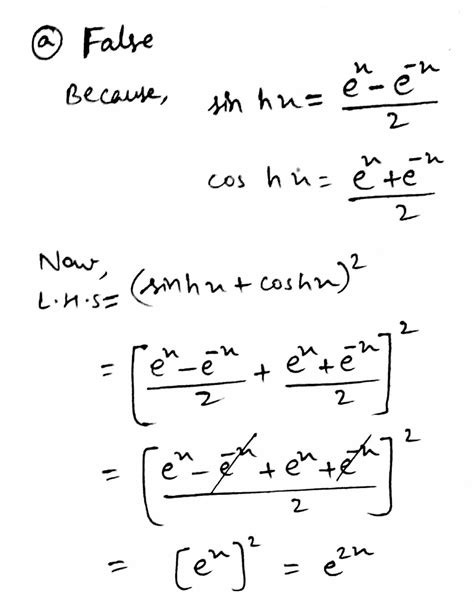 ⓐ False
Because, sin hx = (e^x − e^−x)/2
cos hx = (e^x + e^−x)/2
Now,
L.H.S = (sinhx + coshx)^2
= [(e^x − e^−x)/2 + (e^x + e^−x)/2]^2
= [(e^x − e^−x + e^x + e^−x)/2]^2
= [e^x]^2 = e^2x